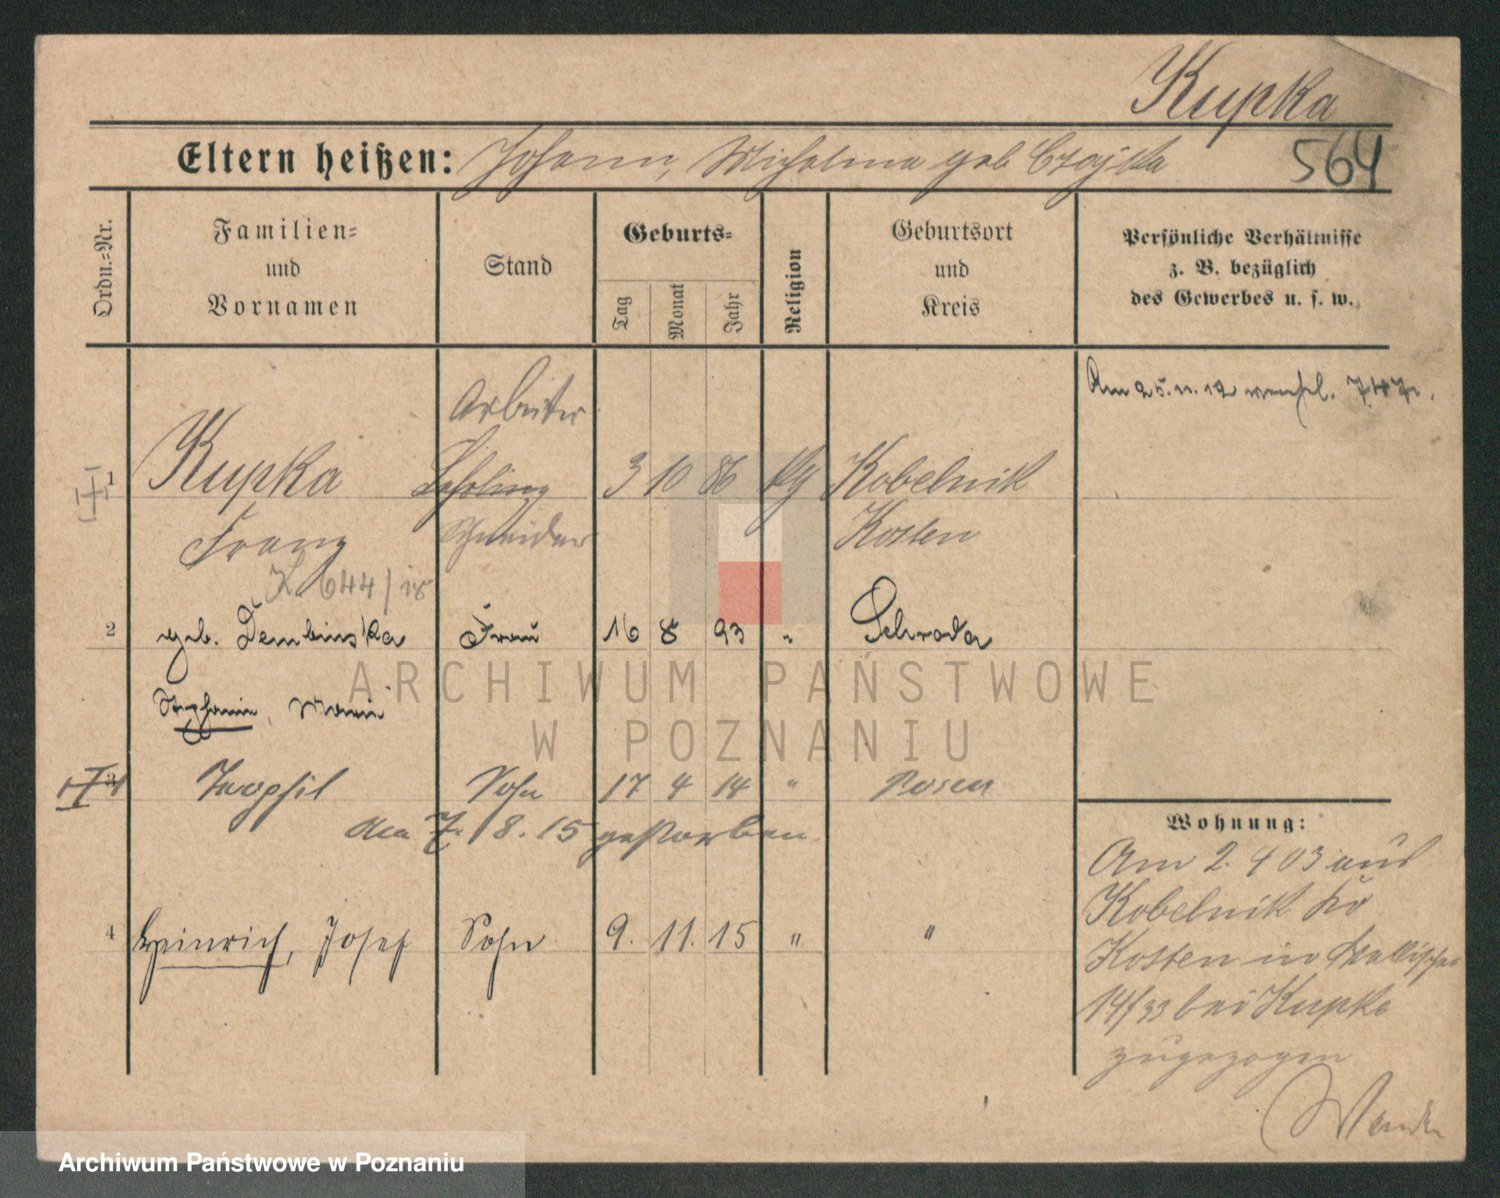 Kupka
Eltern heißen: Johann, Michalina geb Czajka
564
Ordn.-Nr.
Familien-
und
Vornamen
Stand
Geburts-
Tag
Monat
Jahr
Religion
Geburtsort
und
Kreis
Persönliche Verhältnisse
z. B. bezüglich
des Gewerbes u. s. w.
Am 25. 11. 12
Arbeiter
1 Kupka Lehrling 3 10 86 kg Kobelnik
Franz Schneider Kosten
644/18
2 geb. Dembinska Frau 16 8 93 " Schroda
Stephanie, Marie
3 Teophil Sohn 17 4 14 " Posen
am 7. 8. 15 gestorben.
4 Heinrich, Josef Sohn 9. 11. 15 " "
Wohnung:
Am 2. 4 03 aus
Kobelnik
Kosten in
14/33 bei Kupke
zugezogen
ARCHIWUM PAŃSTWOWE
W POZNANIU
Archiwum Państwowe w Poznaniu